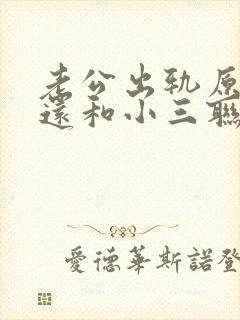 老公出轨原
还和小三联
爱德华斯诺登